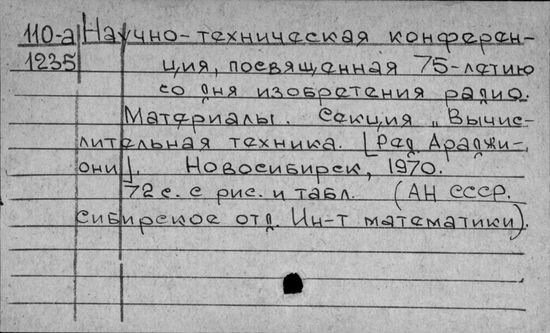 110-а Научно-техническая конферен-
1235 ция, посвященная 75-летию
со дня изобретения радио.
Материалы. Секция „Вычис-
лительная техника. [Ред. Араджи-
они]. Новосибирск, 1970.
72 с. с рис. и табл. (АН СССР.
Сибирское отд. Ин-т математики).